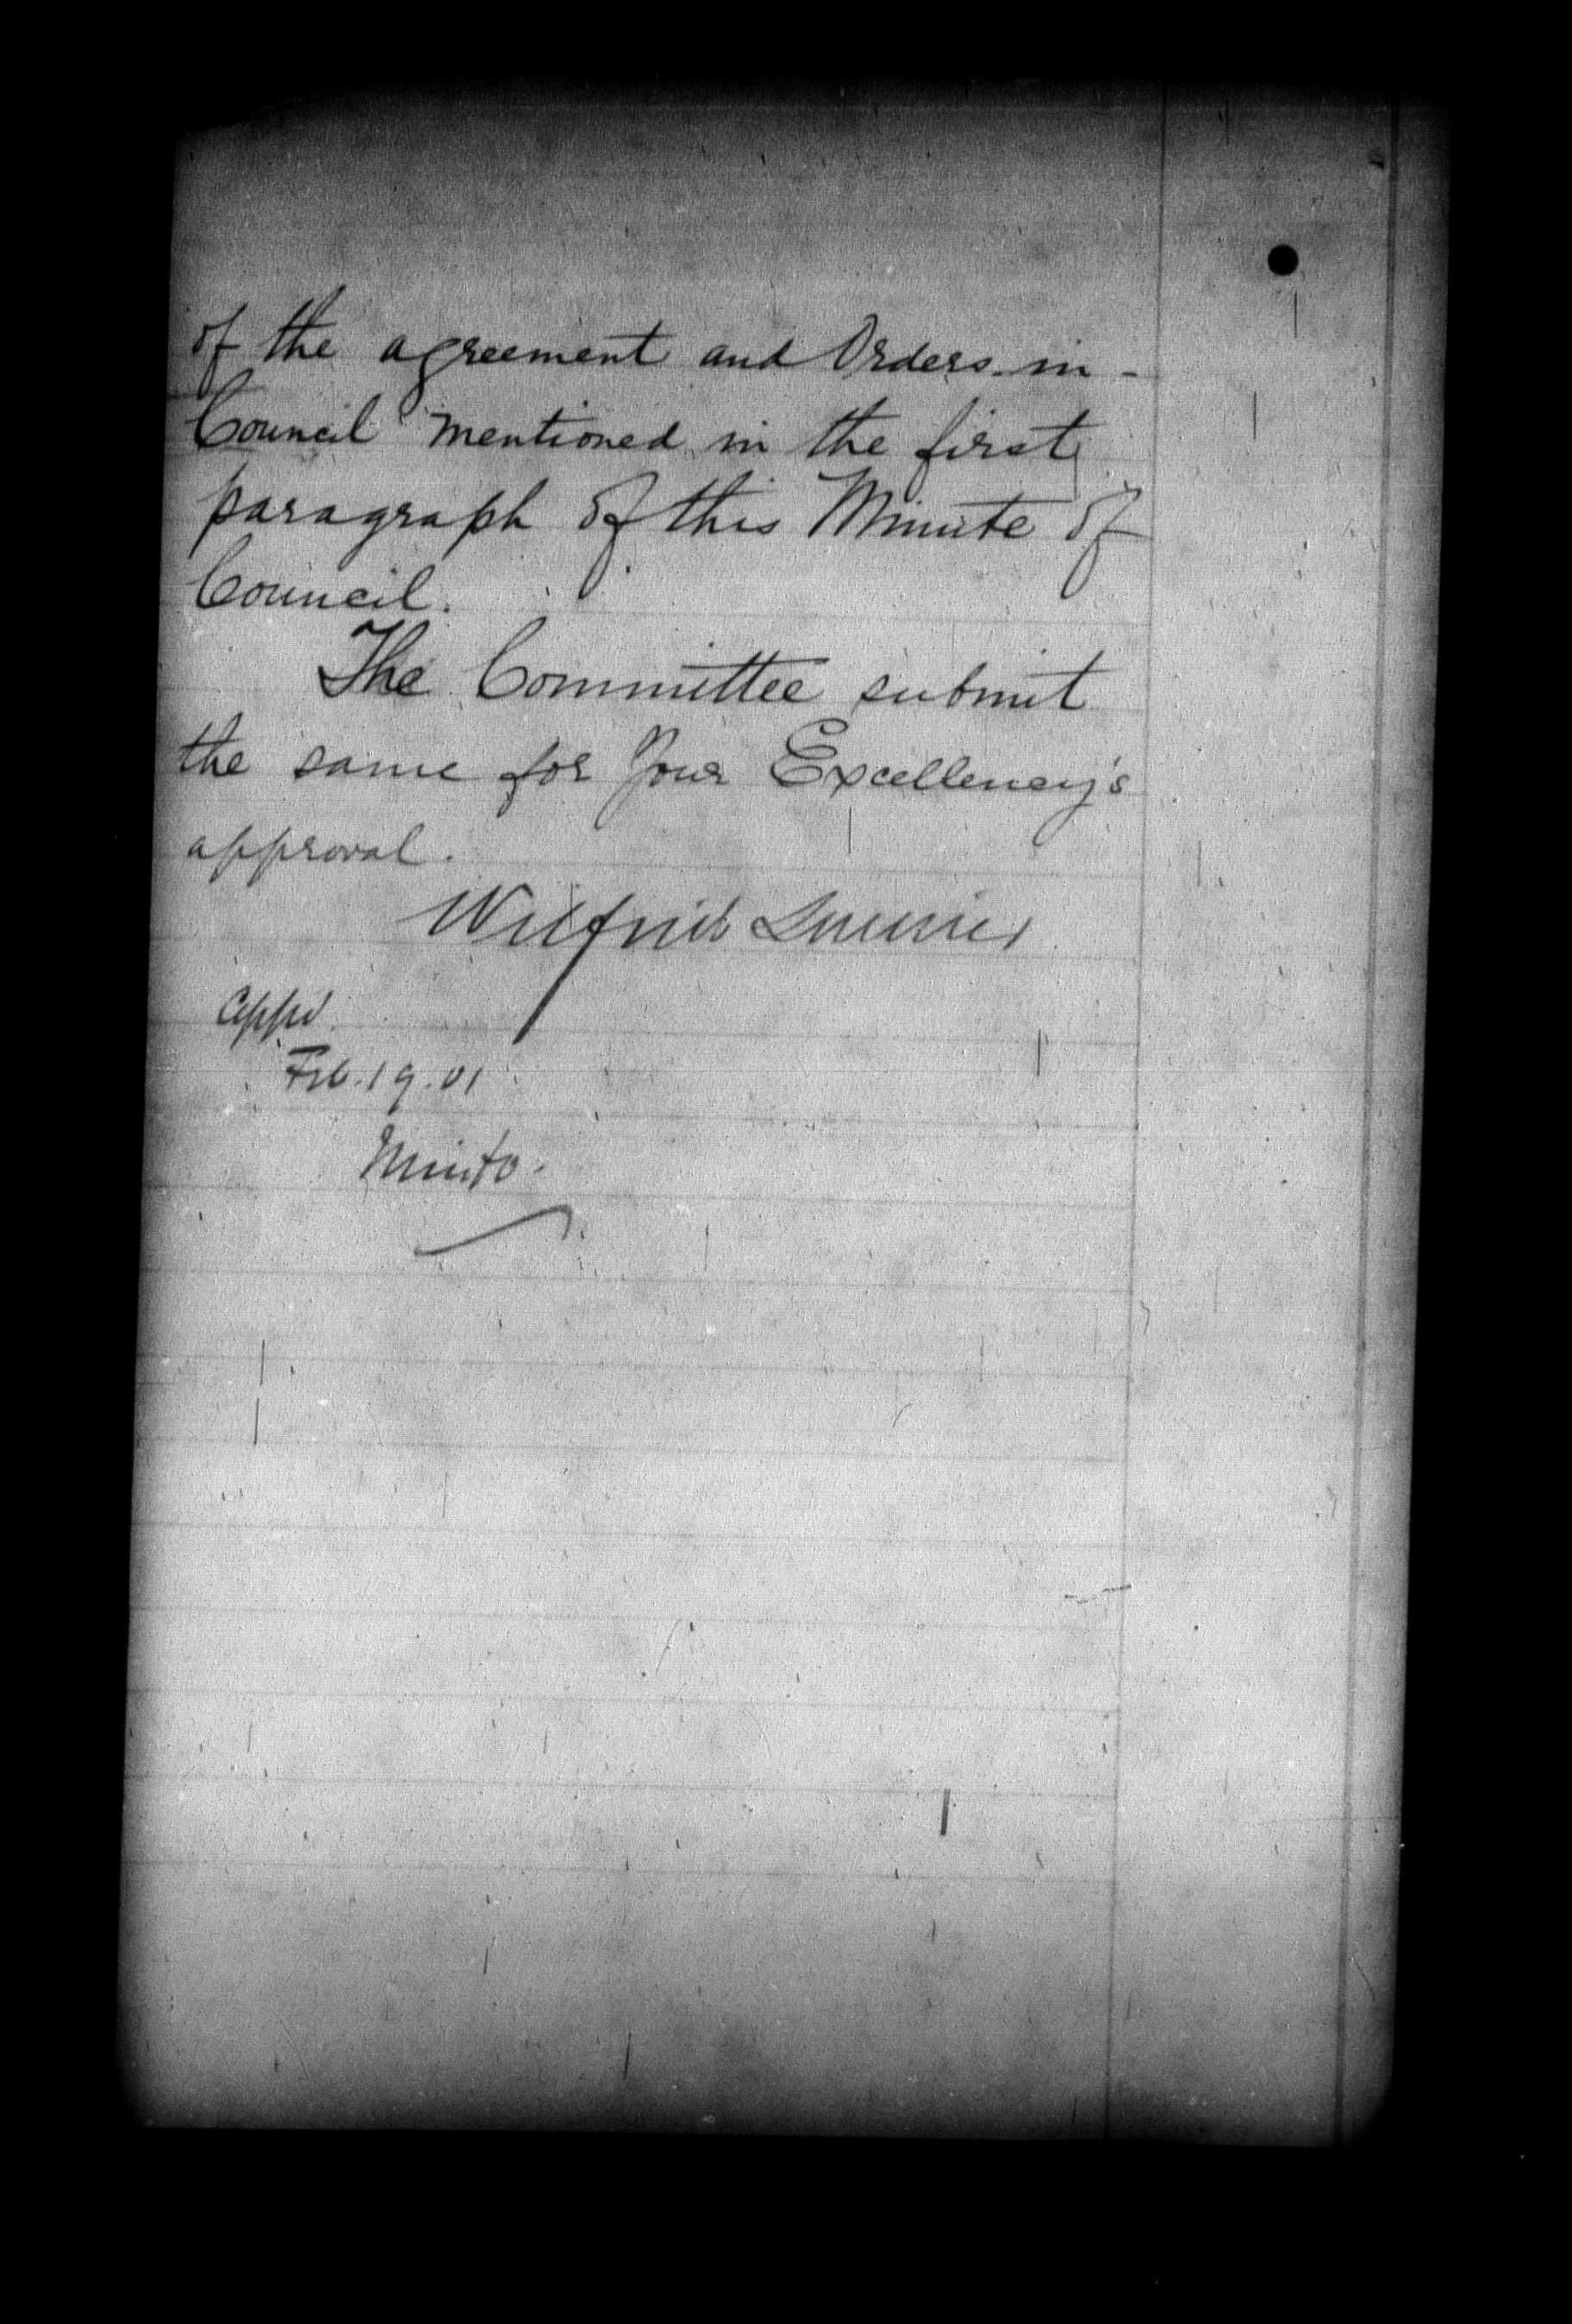 of the agreement and Orders-in-
Council mentioned in the first
paragraph of this Minute of
Council.
The Committee submit
the same for Your Excellency's
approval.
Wilfrid Laurier
Appd.
Feb. 19. 01
Minto.